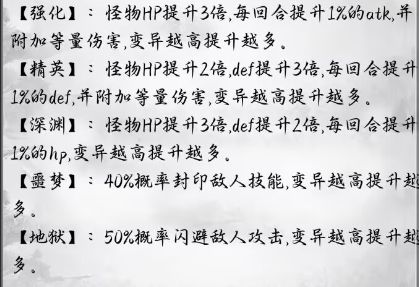 【强化】：怪物HP提升3倍,每回合提升1%的atk,并
附加等量伤害,变异越高提升越多。
【精英】：怪物HP提升2倍,def提升3倍,每回合提升
1%的def,并附加等量伤害,变异越高提升越多。
【深渊】：怪物HP提升3倍,def提升2倍,每回合提升
1%的hp,变异越高提升越多。
【噩梦】：40%概率封印敌人技能,变异越高提升越
多。
【地狱】：50%概率闪避敌人攻击,变异越高提升越
多。